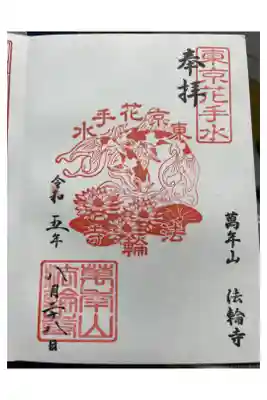 東京花手水
奉拝
東京花手水
法輪寺
萬年山 法輪寺
令和五年
八月二八日
萬年山
法輪寺